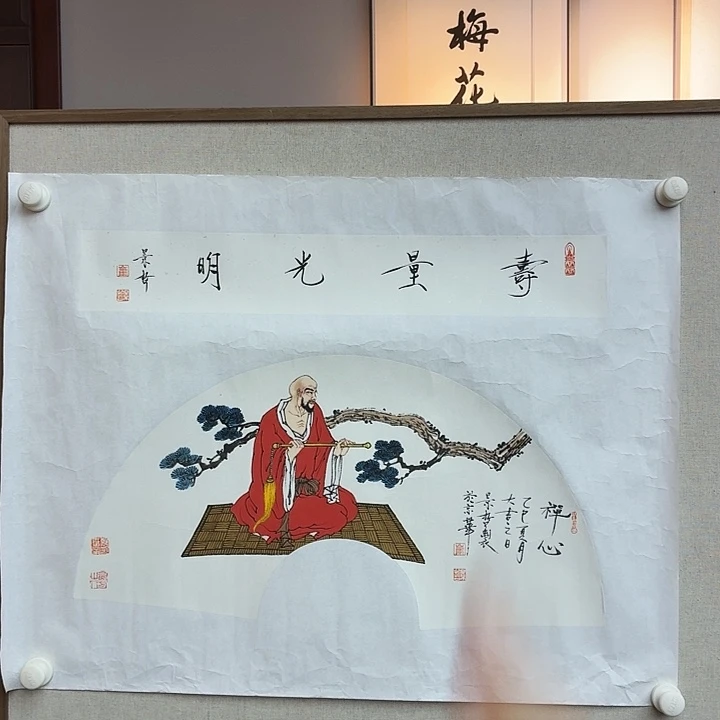 梅花
壽量光明
景哲
禪心
乙巳夏月
大吉之日
景哲製
於京華